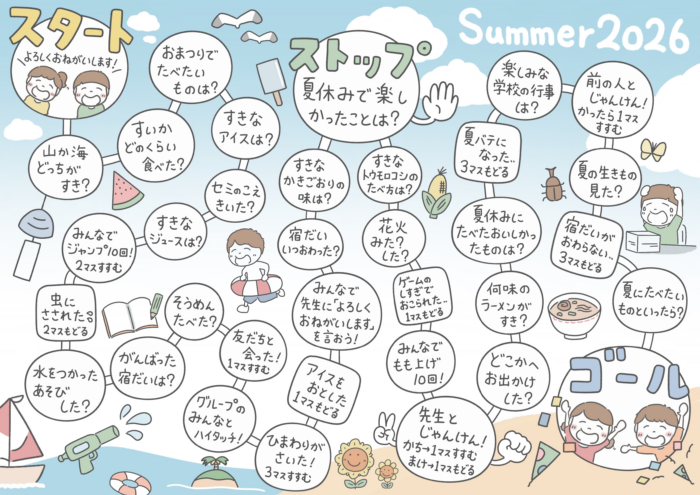 スタート
よろしくおねがいします!
山か海
どっちが
すき?
すいか
どのくらい
食べた?
おまつりで
たべたい
ものは?
すきな
アイスは?
セミのこえ
きいた?
すきな
ジュースは?
みんなで
ジャンプ10回!
2マスすすむ
虫に
さされた
2マスもどる
水をつかった
あそび
した?
がんばった
宿だいは?
そうめん
たべた?
友だちと
会った!
1マスすすむ
グループの
みんなと
ハイタッチ!
ひまわりが
さいた!
3マスすすむ
アイスを
おとした
1マスもどる
みんなで
先生に「よろしく
おねがいします」
を言おう!
宿だい
いつおわった?
すきな
かきごおりの
味は?
ストップ
夏休みで楽し
かったことは?
すきな
トウモロコシの
たべ方は?
花火
みた?
した?
ゲームの
しすぎで
おこられた..
1マスもどる
みんなで
もも上げ
10回!
先生と
じゃんけん!
かち→1マスすすむ
まけ→1マスもどる
どこかへ
お出かけ
した?
何味の
ラーメンが
すき?
夏休みに
たべたおいしかっ
たものは?
夏バテに
なった..
3マスもどる
楽しみな
学校の行事
は?
前の人と
じゃんけん!
かったら1マス
すすむ
夏の生きもの
見た?
宿だいが
おわらない..
3マスもどる
夏にたべたい
ものといったら?
ゴール
Summer2026